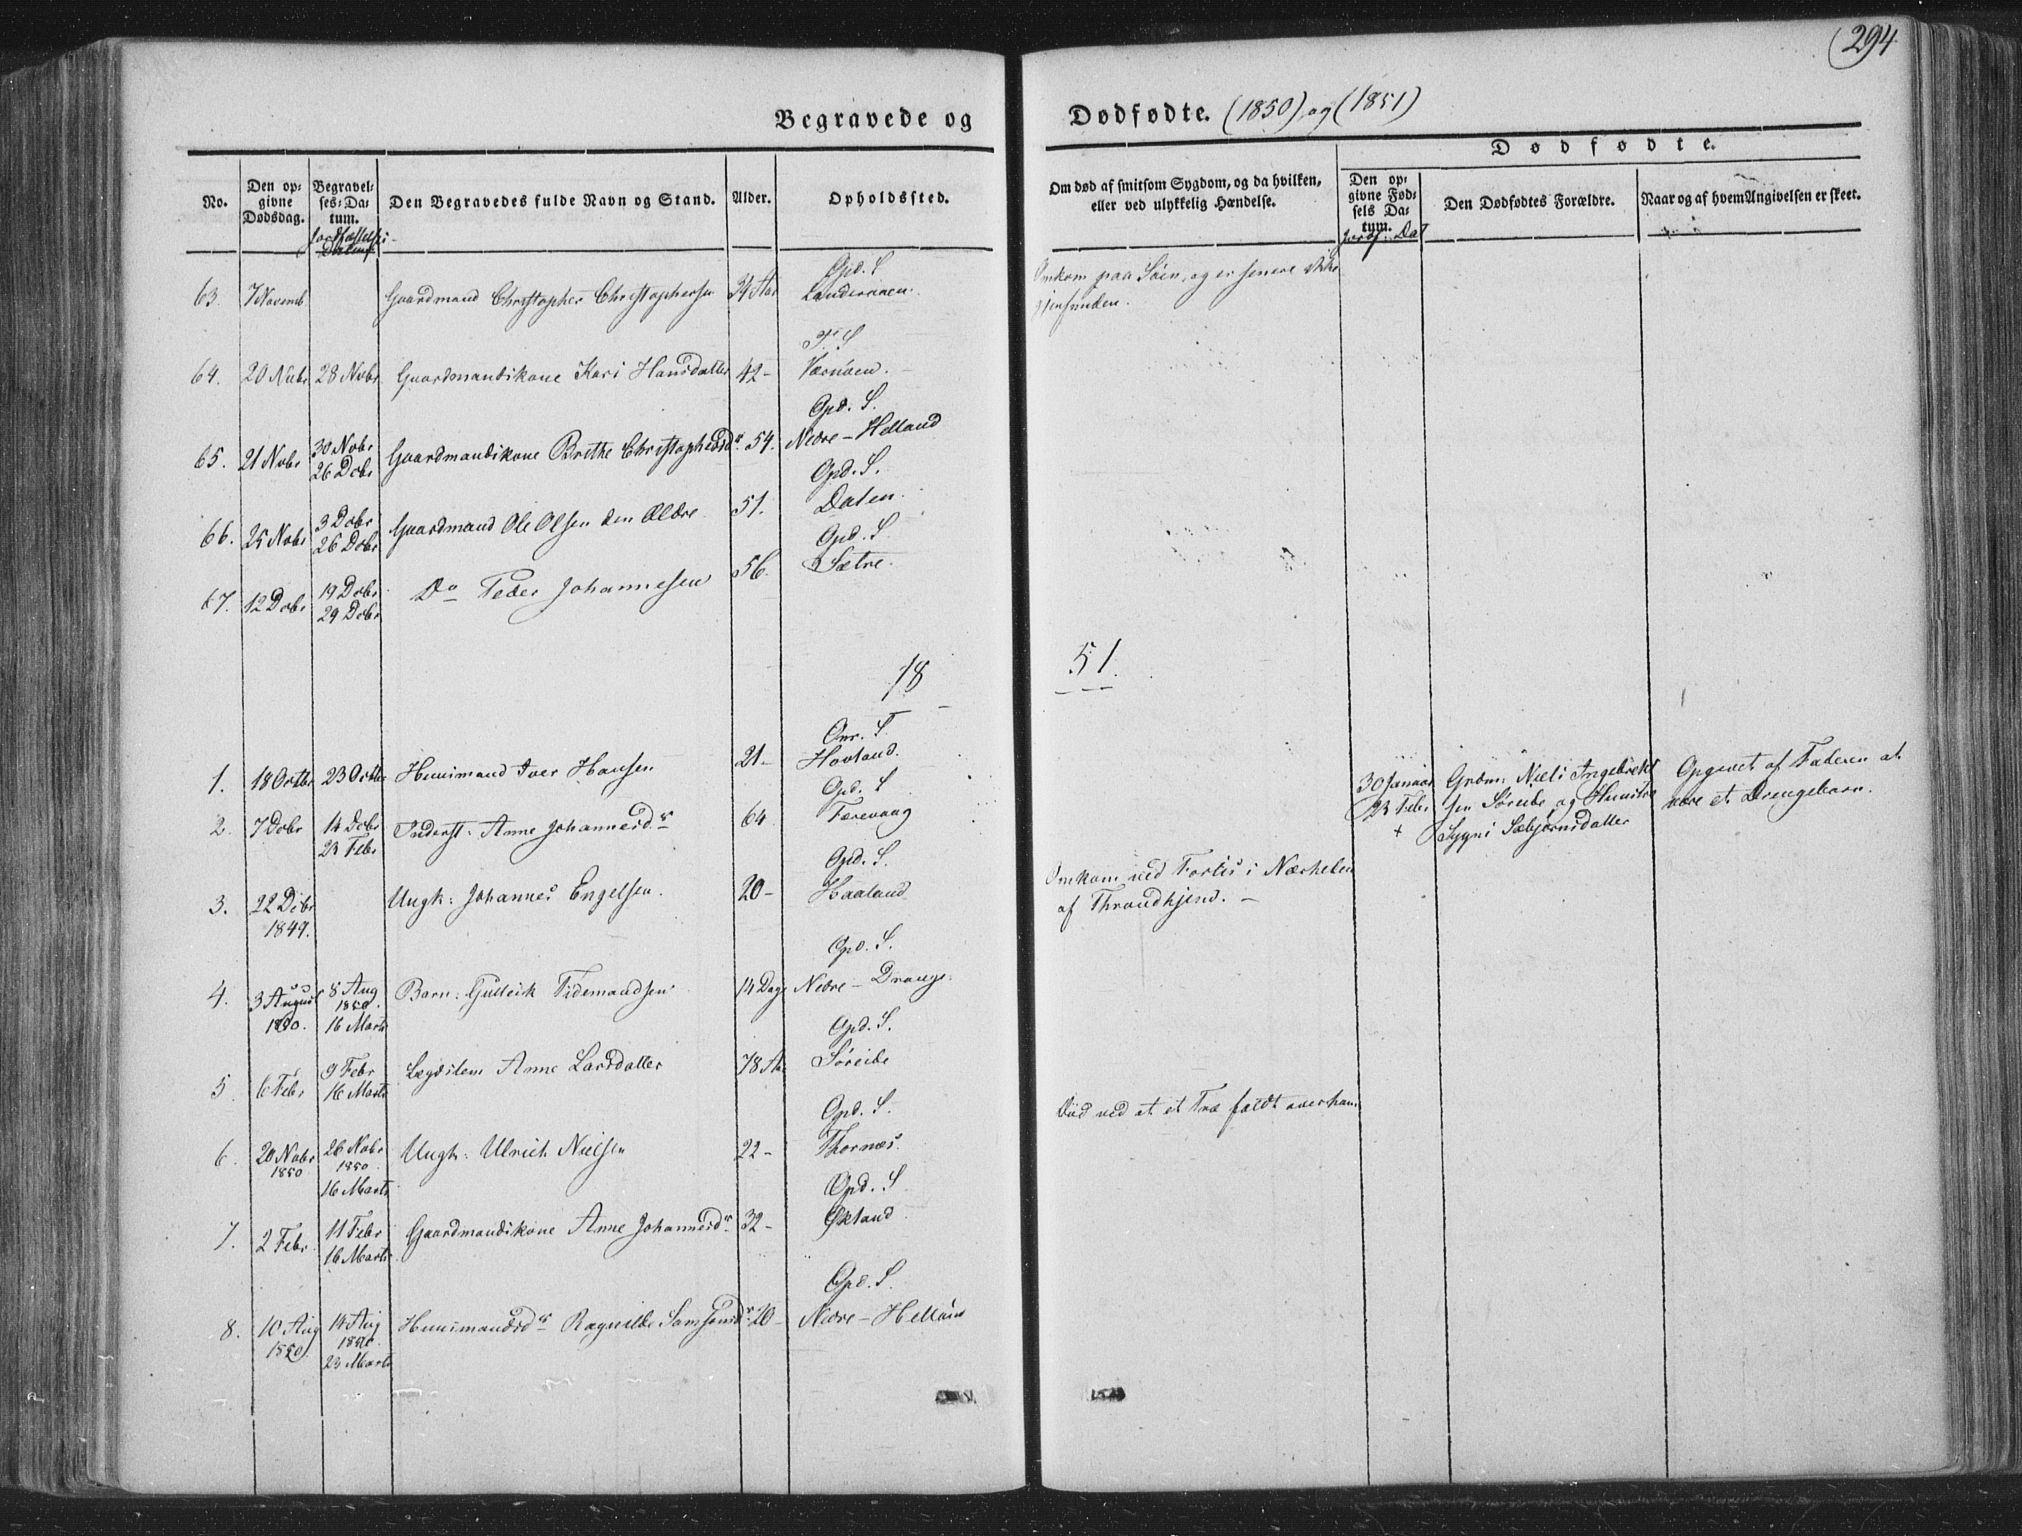 294
Begravede og
Dødfødte. (1850) og (1851)
No.
Den op-
givne
Dødsdag.
Begravel-
ses-Da-
tum.
Jordfæstelses-
Datum
Den Begravedes fulde Navn og Stand.
Alder.
Opholdssted.
Om død af smitsom Sygdom, og da hvilken,
eller ved ulykkelig Hændelse.
Dødfødte.
Den op-
givne Fød-
sels Da-
tum.
Jordf. Dat
Den Dødfødtes Forældre.
Naar og af hvem Angivelsen er skeet.
Opd. S
63. 7 Novemb Gaardmand Christopher Christophersen 34 Aar Omkom paa Søen, og er senere ikke
gjenfunden.
S
64. 20 Nobr 28 Nobr Gaardmandskone Kari Hansdatter 42 - Værnøen.
Opd. S.
65. 21 Nobr 30 Nobr Gaardmandskone Brithe Christophersdr 54. Nedre-Helland
26 Debr
Opd. S.
66. 25 Nobr 3 Dobr Gaardmand Ole Olsen den Ældre 51. Dalen.
26 Dobr
Opd. S.
67. 12 Dobr 19 Dobr Do Peder Johannesen 56. Sætre.
29 Dobr
18 51.
Onr. S
1. 18 Octbr 23 Octbr Huusmand Iver Hansen 21 - Hovland.
30 Januar Grdm: Niels Ingebrigt Opgivet af Faderen at
23 Febr sen Søreide og Hustru være et Drengebarn.
+ Sygni Sæbjørnsdatter
Opd. S
2. 7 Dobr 14 Dobr Inderst: Anne Johannesdr 64 Færevaag
23 Febr
Opd. S.
3. 22 Debr Ungk: Johannes Engelsen. 20 - Haaland Omkom ved Forlis i Nærheden
1849. af Throndhjem. -
Opd. S.
4. 3 August 8 Aug Barn: Gulleik Tidemandsen 14 Dage Nedre-Drange.
1850. 1850.
16 Marts
Opd. S.
5 6 Febr 9 Febr Lægdslem Anne Larsdatter 78 Aar Søreide
16 Marts
Opd. S.
6. 20 Nobr 26 Nobr Ungk: Ulrich Nielsen 22 - Thornæs. Død ved at et Træ faldt over ham
1850 1850
16 Marts
Opd. S
7. 2 Febr 11 Febr Gaardmandskone Anne Johannesdr 32 - Økland
16 Marts
Opd. S.
8. 10 Aug 14 Aug Huusmandsdr Ragnilde Samsonsdr 10 - Nedre-Helland
1850. 1850.
23 Marts